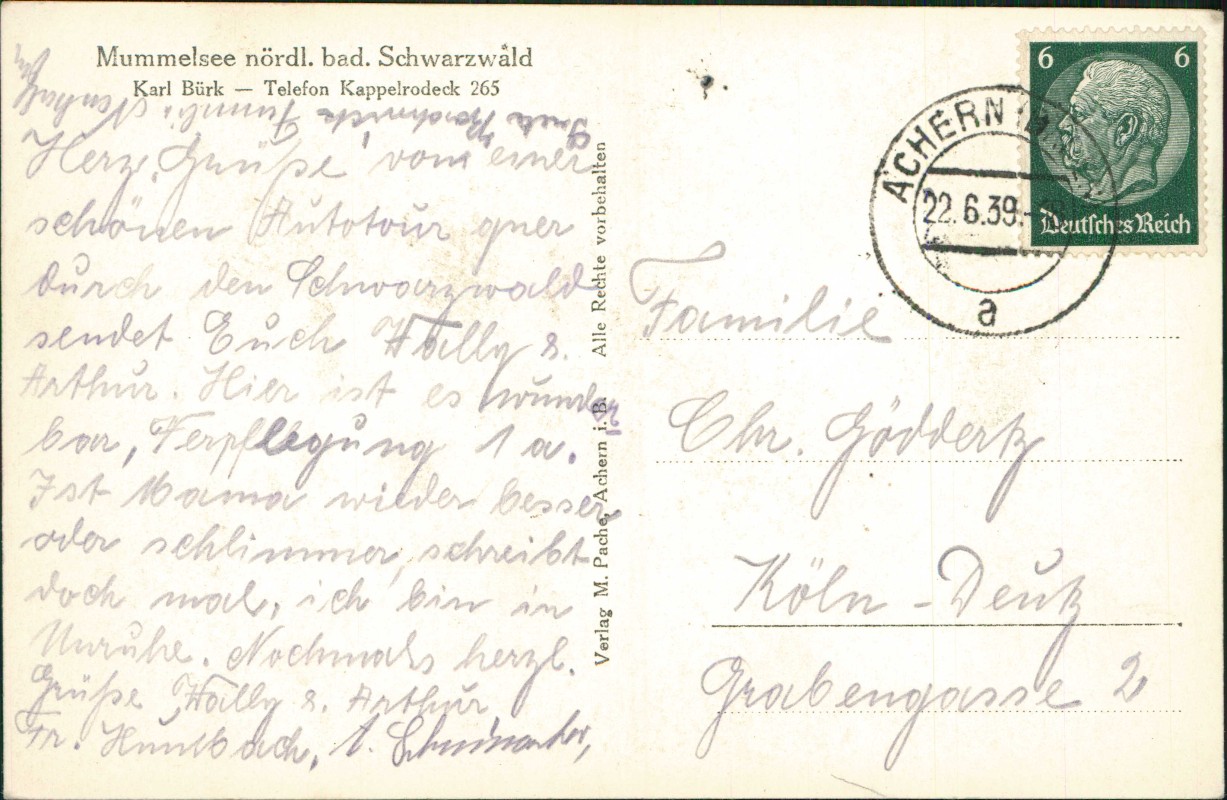 Mummelsee nördl. bad. Schwarzwald
Karl Bürk — Telefon Kappelrodeck 265
Familie
Herz. Grüße von einer
schönen Autotour quer
durch den Schwarzwald
sendet Euch Wally &.
Arthur. Hier ist es wunder
bar, Verpflegung 1 a.
Ist Mama wieder besser
oder schlimmer, schreibt
doch mal, ich bin in
Unruhe. Nochmals herzl.
Grüße Wally &. Arthur
Fr.
Verlag M. Pache, Achern i. B. Alle Rechte vorbehalten
6 6
Deutsches Reich
ACHERN
22.6.39.
a
Familie
Chr. Göddertz
Köln - Deutz
Grabengasse 2